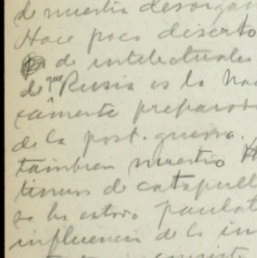 de nuestra desorgan
Hace poco diserto
de intelectuales
de que Rusia es la nac
camente preparad
de la post-guerra.
tambien nuestro
timus de catapul
se ha estado paulat
influencia de la in